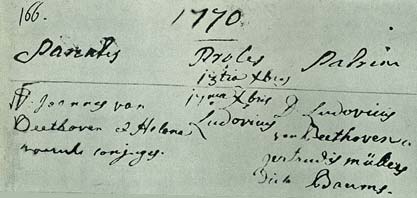 166.
1770
Parentes Proles Patrini
D. Joannes van
Beethoven & Helena
conjuges.
17ma Xbris
Ludovicus
D. Ludovicus
van Beethoven &
gertrudis müllers
dicta Baums.